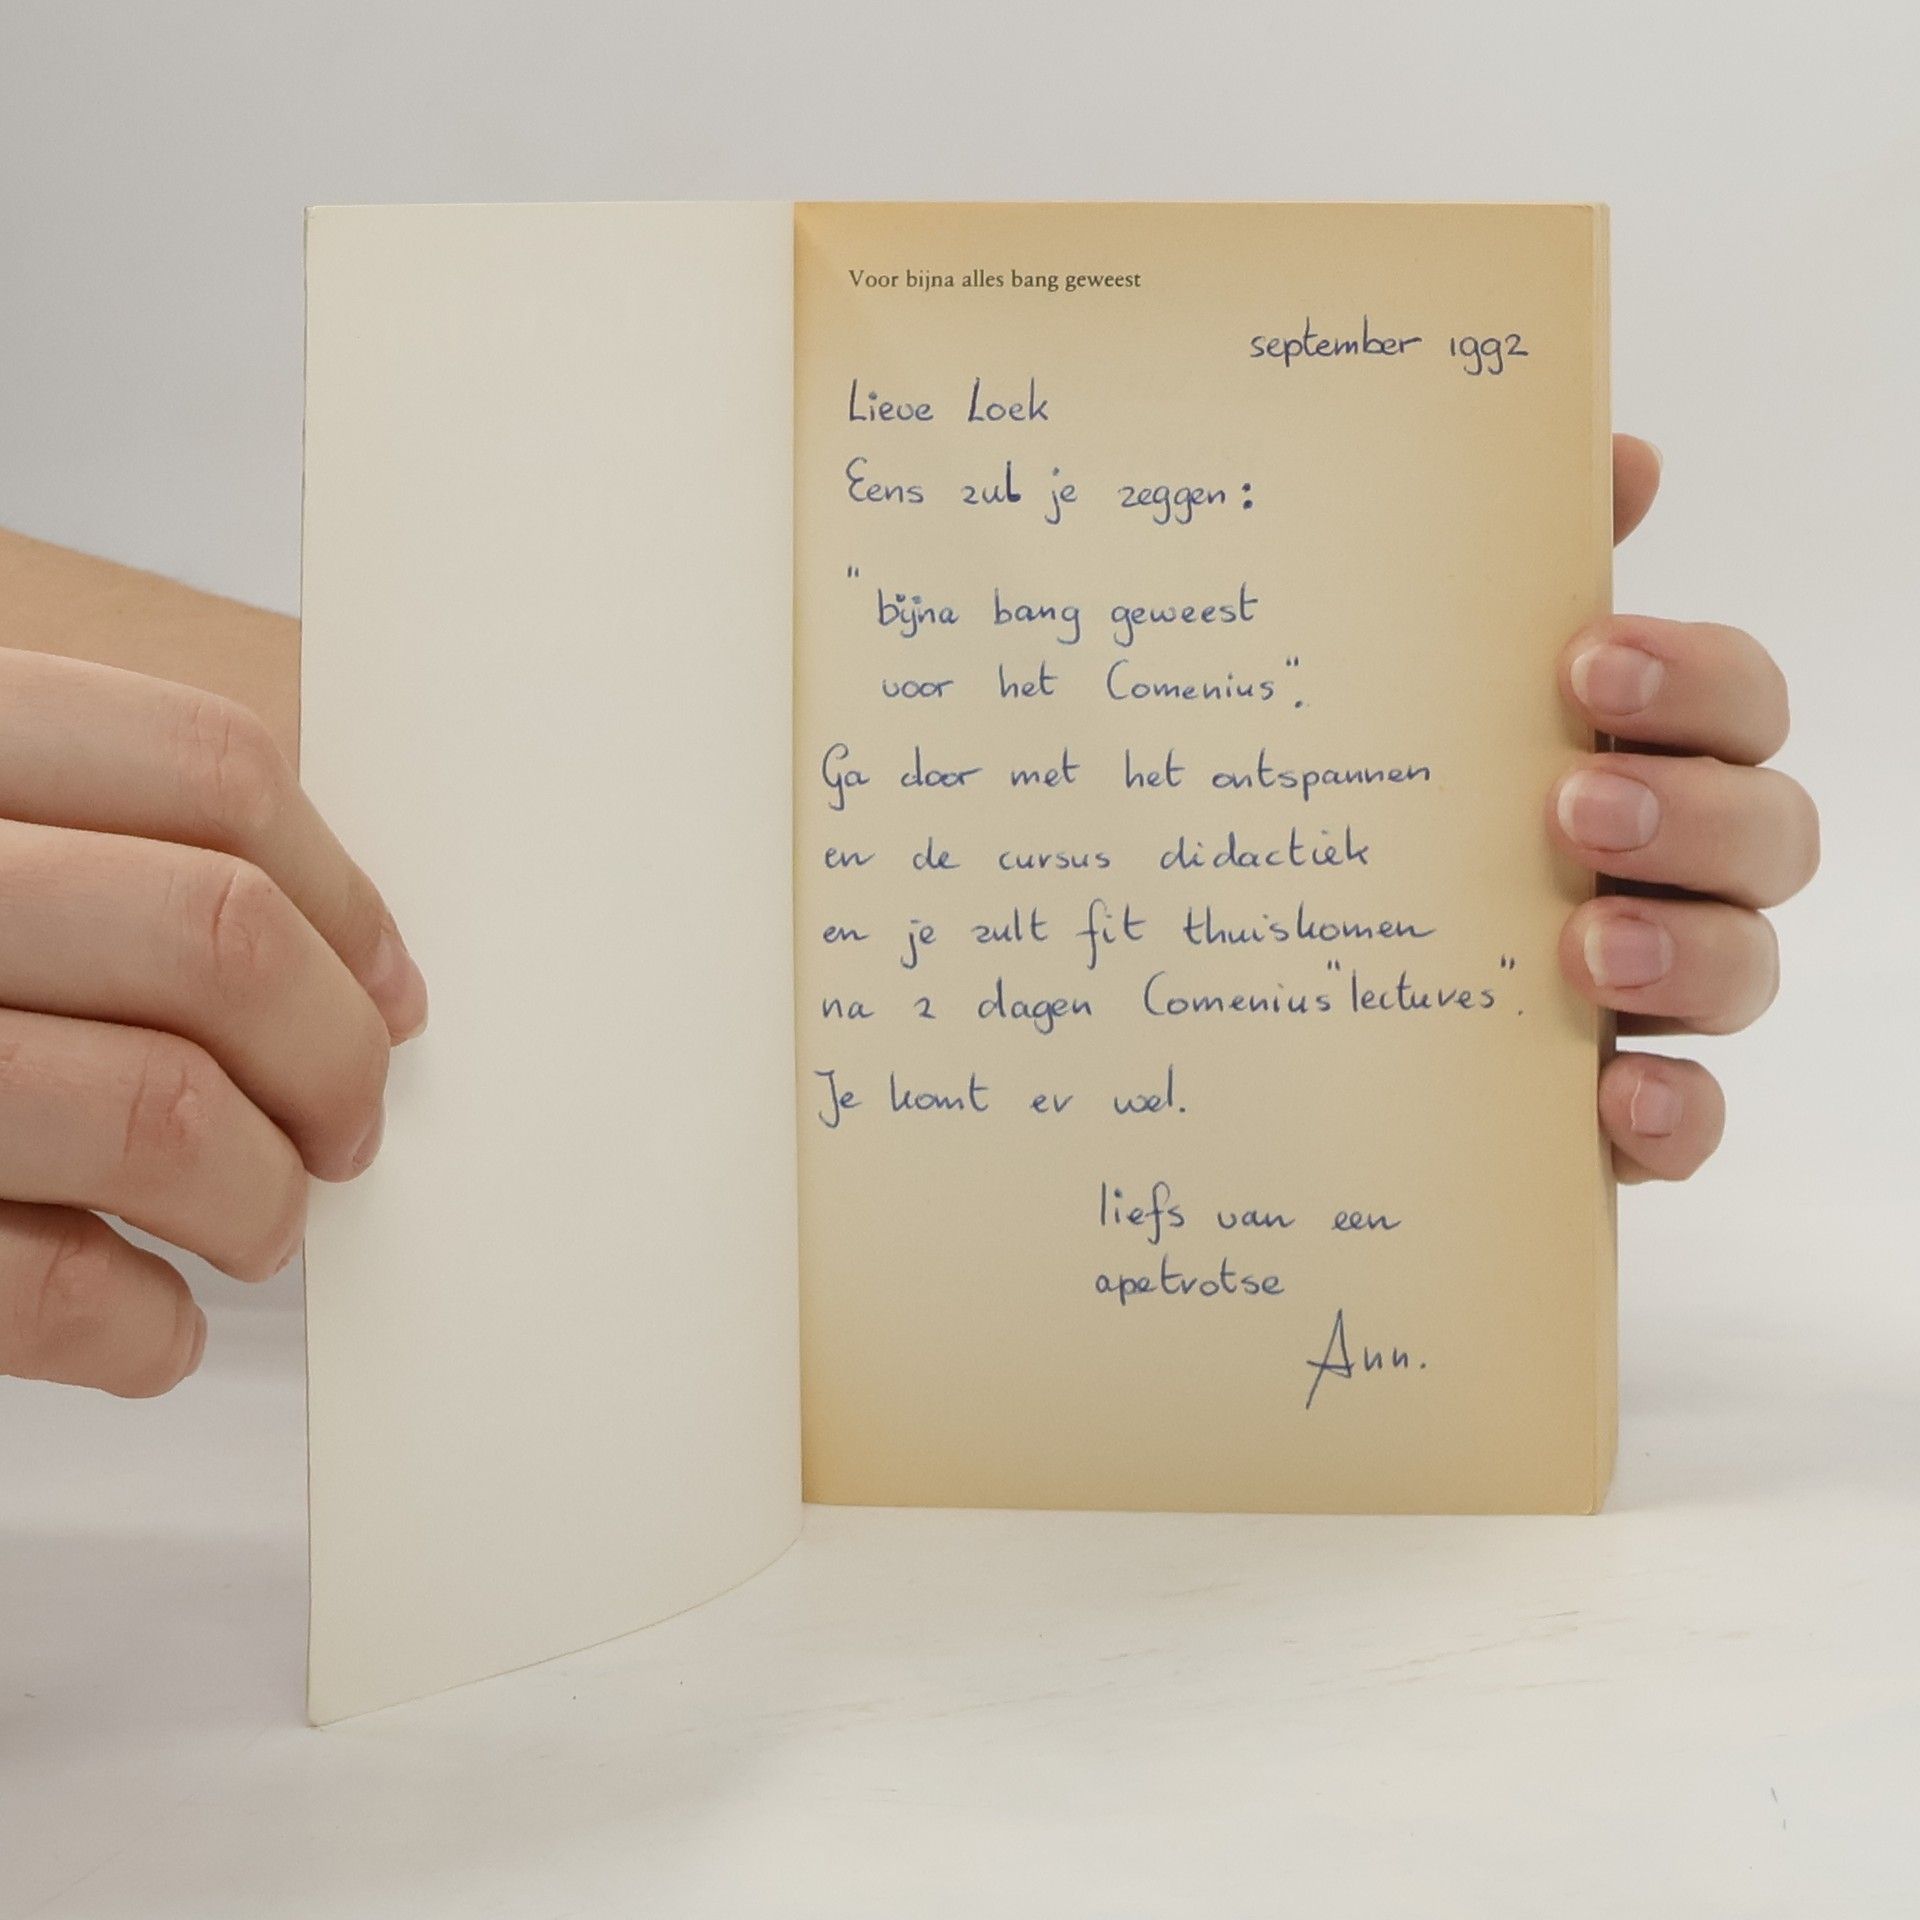 Voor bijna alles bang geweest
september 1992
Lieve Loek
Eens zul je zeggen:
"bijna bang geweest
voor het Comenius".
Ga door met het ontspannen
en de cursus didactiek
en je zult fit thuiskomen
na 2 dagen Comenius "lectures".
Je komt er wel.
liefs van een
apetrotse
Ann.